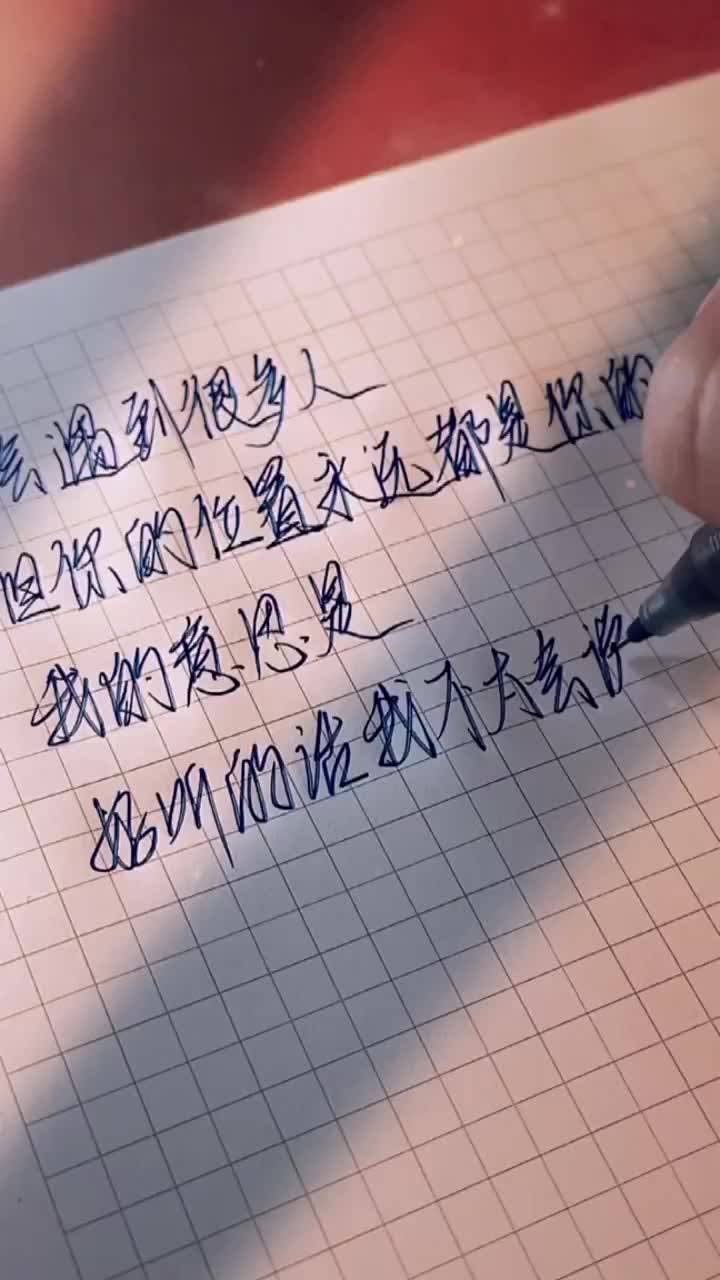 会遇到很多人
但你的位置永远都是你的
我的意思是
好听的话我不太会说